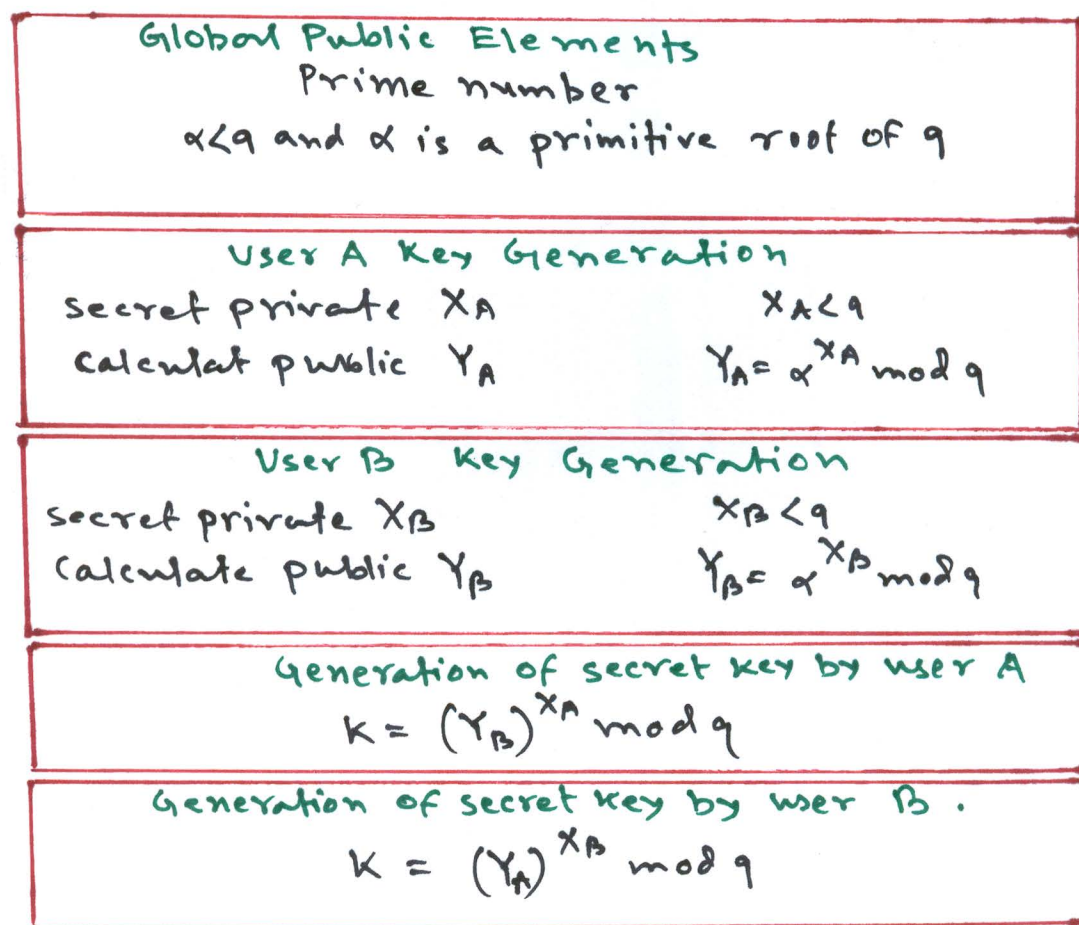 Global Public Elements
Prime number
α<q and α is a primitive root of q
User A Key Generation
secret private X_A X_A<q
Calculat public Y_A Y_A = α^X_A mod q
User B Key Generation
secret private X_B X_B<q
Calculate public Y_B Y_B = α^X_B mod q
Generation of secret key by user A
K = (Y_B)^X_A mod q
Generation of secret key by user B.
K = (Y_A)^X_B mod q